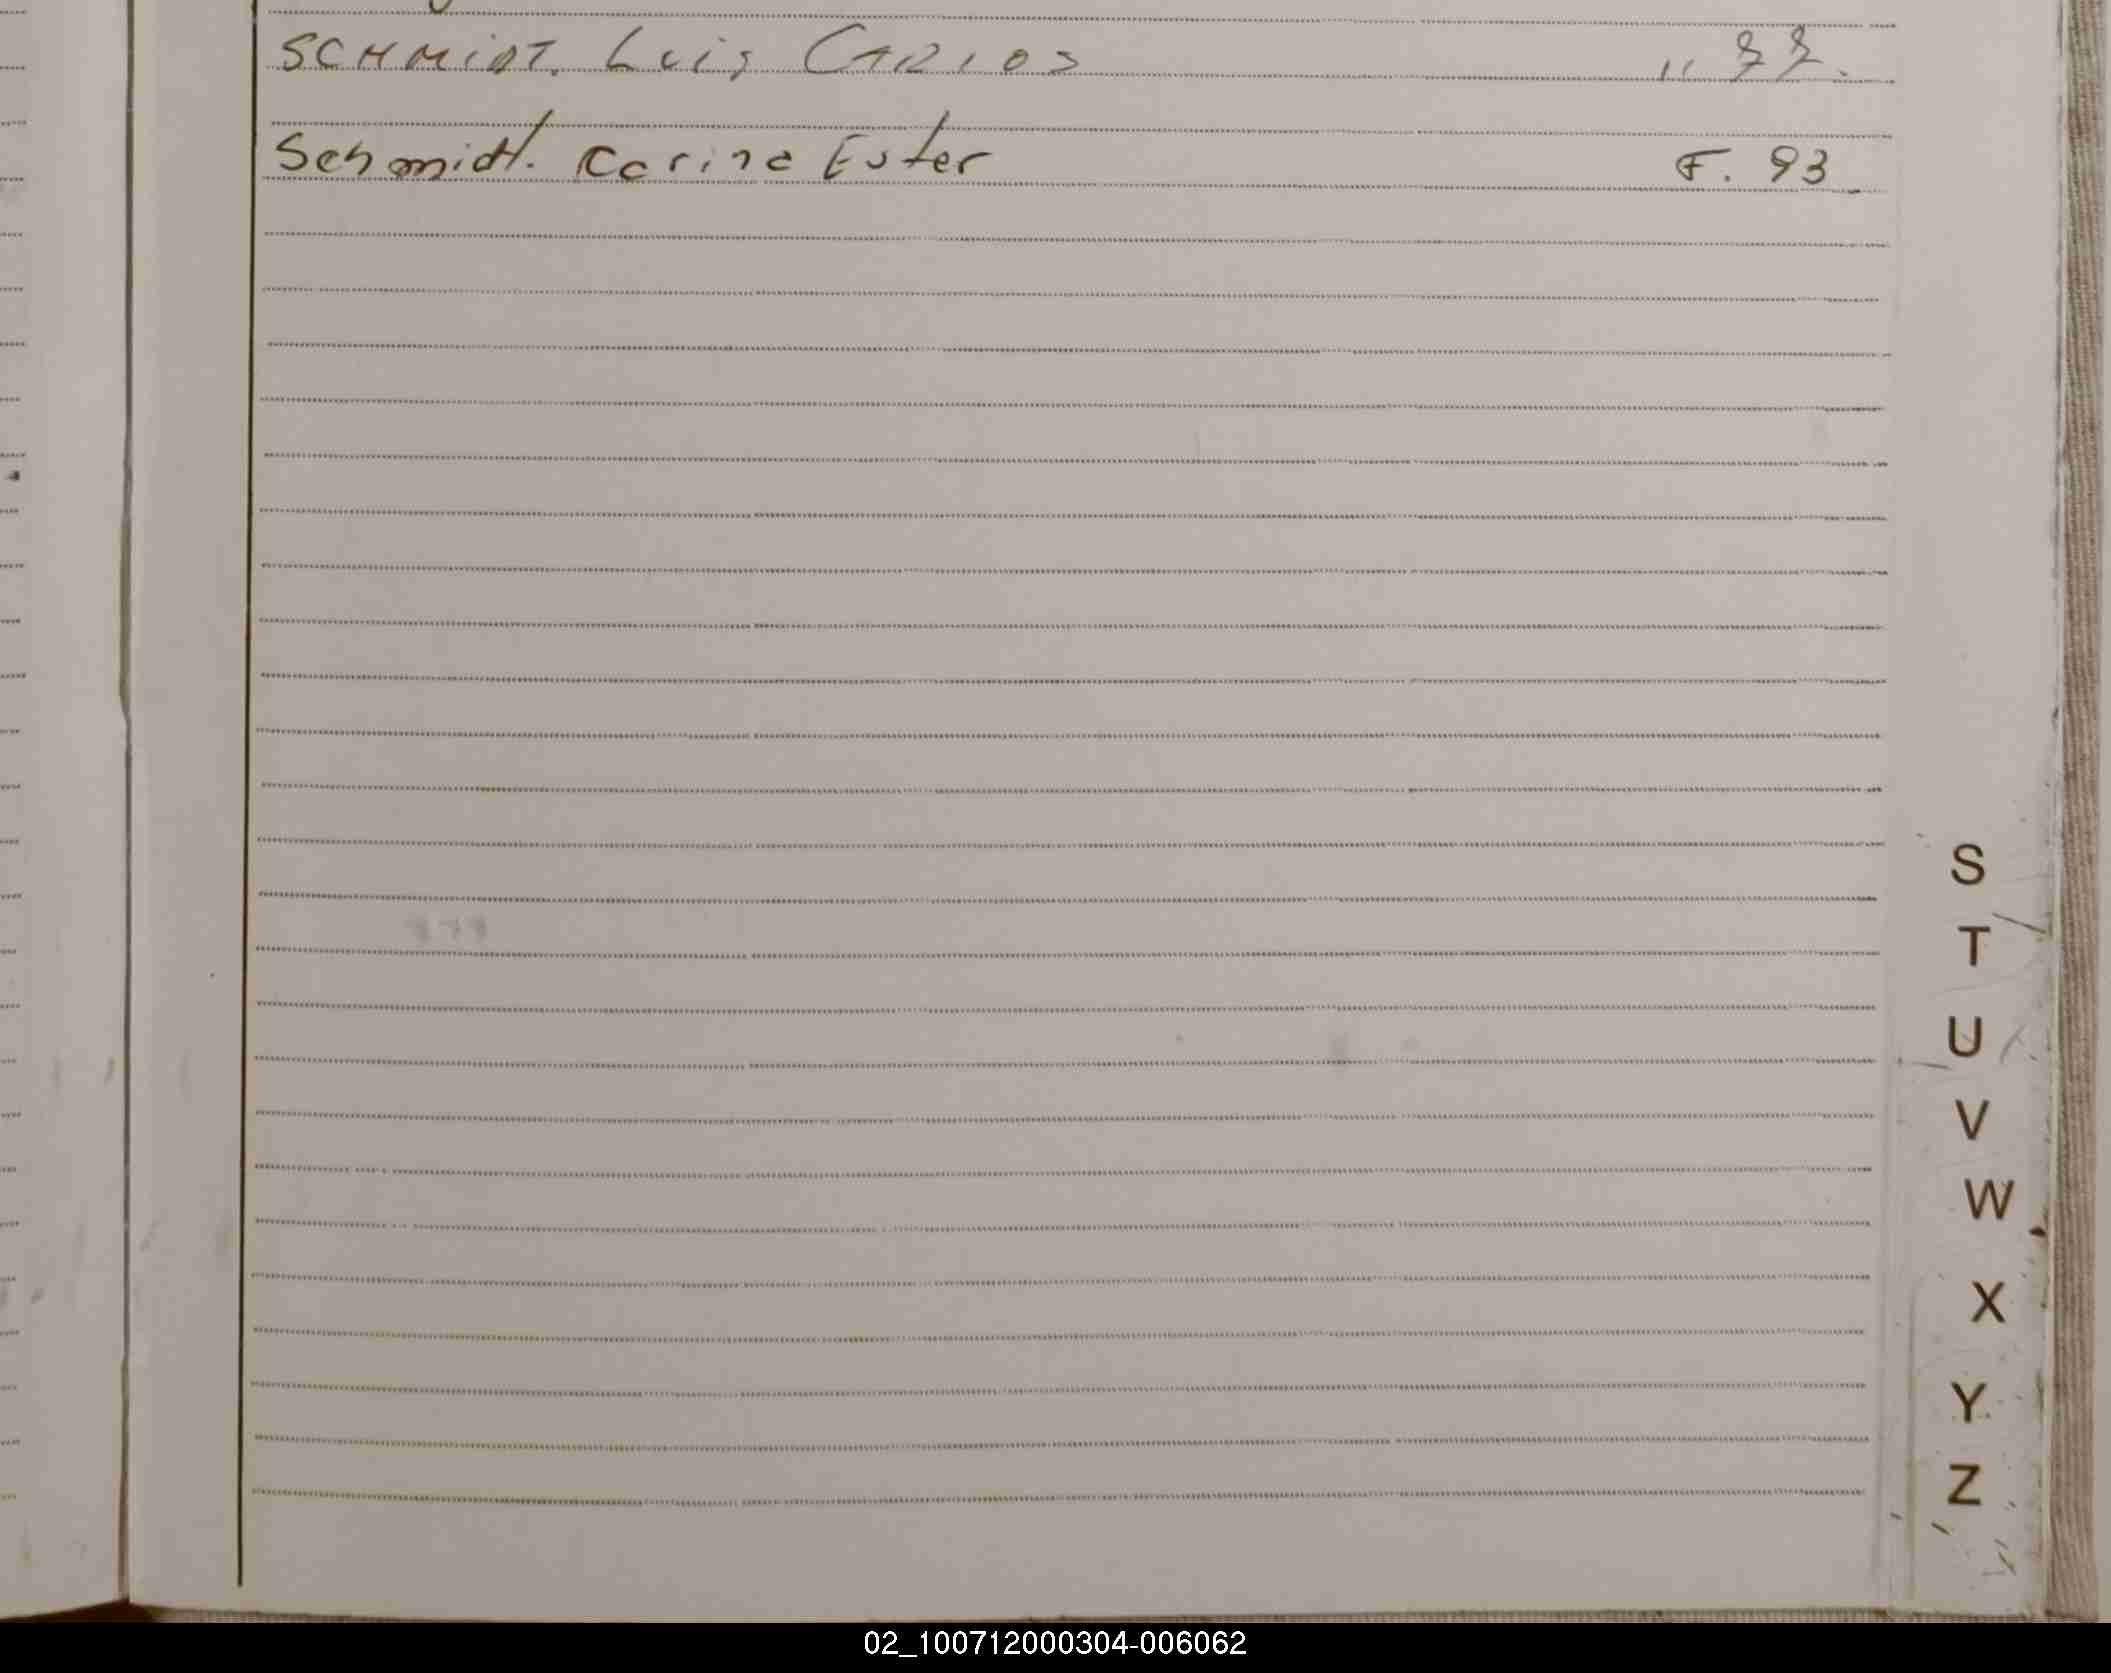 SCHMIDT. Luis CARLOS
Schmidt. Carina Ester F. 93
S
T
U
V
W
X
Y
Z
02_100712000304-006062